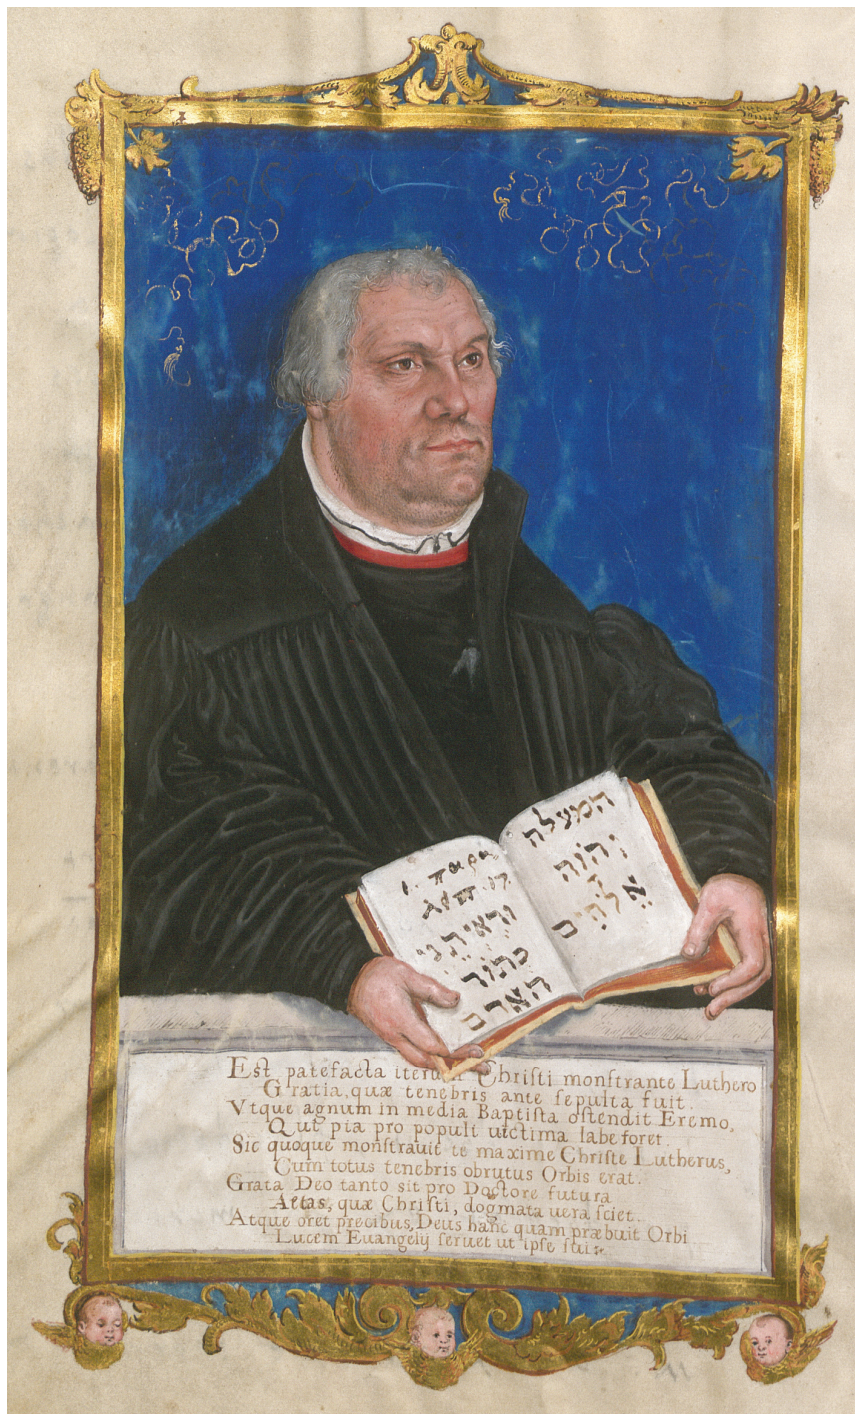 1. παρα
λιπ. 17
וּרְאִיתַנִי
כְּתוֹר
האדם
המעלה
יְהוֹה
אֱלֹהִים
Eſt patefacta iterum Chriſti monſtrante Luthero
Gratia, quæ tenebris ante ſepulta fuit.
Vtque agnum in media Baptiſta oſtendit Eremo,
Qui pia pro populi uictima labe foret.
Sic quoque monſtrauit te maxime Chriſte Lutherus,
Cum totus tenebris obrutus Orbis erat.
Grata Deo tanto sit pro Doctore futura
Aetas, quæ Chriſti, dogmata uera ſciet.
Atque oret precibus, Deus hanc quam præbuit Orbi
Lucem Euangelij ſeruet ut ipſe ſui